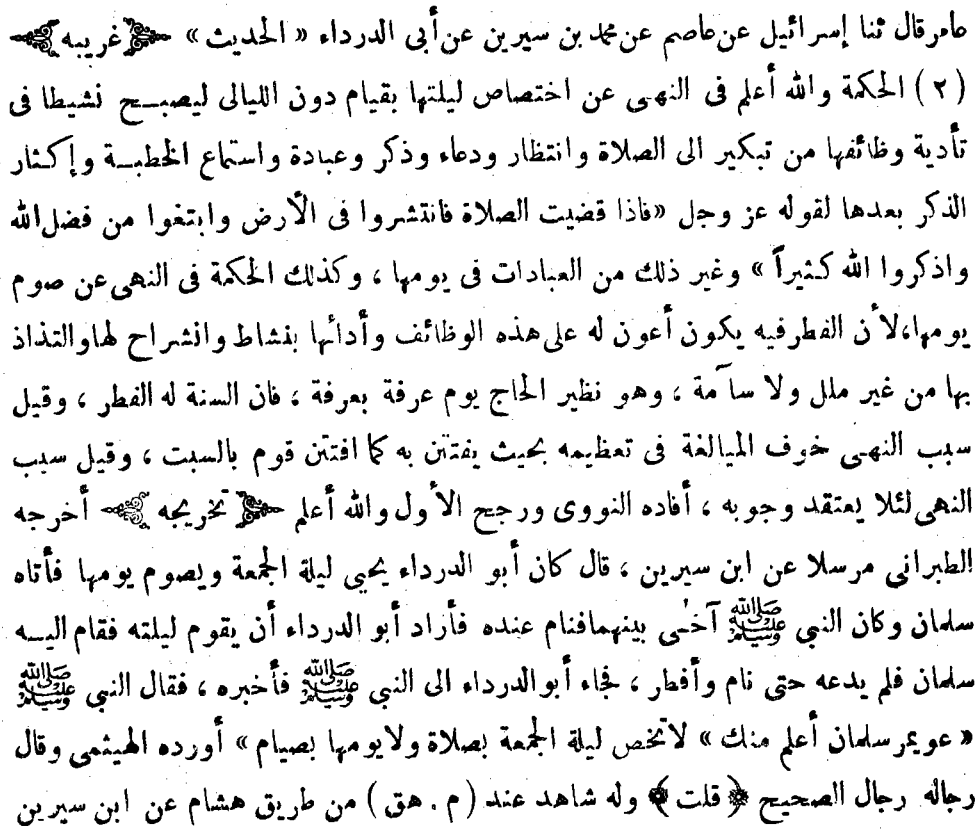 عامر قال ثنا إسرائيل عن عاصم عن محمد بن سيرين عن أبى الدرداء « الحديث » ﴿ غريبه ﴾
( ٢ ) الحكمة والله أعلم فى النهى عن اختصاص ليلتها بقيام دون الليالى ليصبح نشيطا فى
تأدية وظائفها من تبكير الى الصلاة وانتظار ودعاء وذكر وعبادة واستماع الخطبة وإكثار
الذكر بعدها لقوله عز وجل «فاذا قضيت الصلاة فانتشروا فى الأرض وابتغوا من فضل الله
واذكروا الله كثيراً » وغير ذلك من العبادات فى يومها ، وكذلك الحكمة فى النهى عن صوم
يومها،لأن الفطر فيه يكون أعون له على هذه الوظائف وأدائها بنشاط وانشراح لها والتذاذ
بها من غير ملل ولا سآمة ، وهو نظير الحاج يوم عرفة بعرفة ، فان السنة له الفطر ، وقيل
سبب النهى خوف المبالغة فى تعظيمه بحيث يفتتن به كما افتتن قوم بالسبت ، وقيل سبب
النهى لئلا يعتقد وجوبه ، أفاده النووى ورجح الأول والله أعلم ﴿ تخريجه ﴾ أخرجه
الطبرانى مرسلا عن ابن سيرين ، قال كان أبو الدرداء يحيى ليلة الجمعة ويصوم يومها فأتاه
سلمان وكان النبى ﷺ آخى بينهما فنام عنده فأراد أبو الدرداء أن يقوم ليلته فقام اليه
سلمان فلم يدعه حتى نام وأفطر ، فجاء أبو الدرداء الى النبى ﷺ فأخبره ، فقال النبى ﷺ
« عويمر سلمان أعلم منك » لاتختص ليلة الجمعة بصلاة ولا يومها بصيام » أورده الهيثمى وقال
رجاله رجال الصحيح ﴿ قلت ﴾ وله شاهد عند ( م . هق ) من طريق هشام عن ابن سيرين